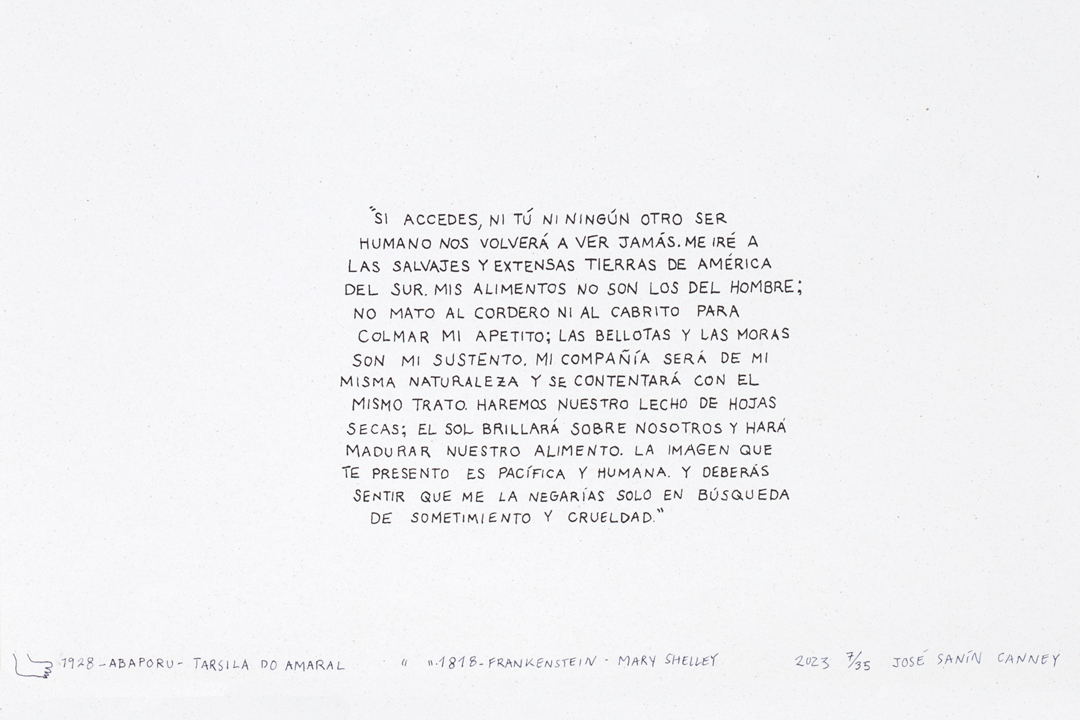 "SI ACCEDES, NI TÚ NI NINGÚN OTRO SER
HUMANO NOS VOLVERÁ A VER JAMÁS. ME IRÉ A
LAS SALVAJES Y EXTENSAS TIERRAS DE AMÉRICA
DEL SUR. MIS ALIMENTOS NO SON LOS DEL HOMBRE;
NO MATO AL CORDERO NI AL CABRITO PARA
COLMAR MI APETITO; LAS BELLOTAS Y LAS MORAS
SON MI SUSTENTO. MI COMPAÑÍA SERÁ DE MI
MISMA NATURALEZA Y SE CONTENTARÁ CON EL
MISMO TRATO. HAREMOS NUESTRO LECHO DE HOJAS
SECAS; EL SOL BRILLARÁ SOBRE NOSOTROS Y HARÁ
MADURAR NUESTRO ALIMENTO. LA IMAGEN QUE
TE PRESENTO ES PACÍFICA Y HUMANA. Y DEBERÁS
SENTIR QUE ME LA NEGARÍAS SOLO EN BÚSQUEDA
DE SOMETIMIENTO Y CRUELDAD."
1928-ABAPORU- TARSILA DO AMARAL " ".1818-FRANKENSTEIN - MARY SHELLEY 2023 7/35 JOSÉ SANÍN CANNEY